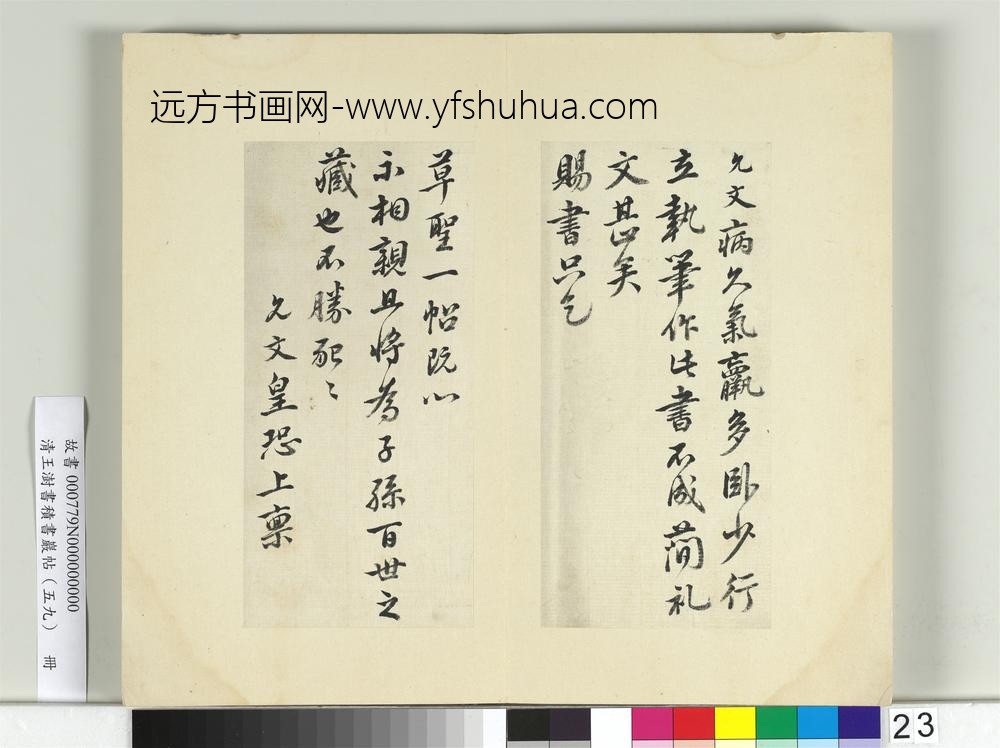 远方书画网-www.yfshuhua.com
允文病久氣羸多卧少行
立執筆作此書不成简礼
文甚矣
賜書只乞
草聖一帖既心
示相親且將為子孫百世之
藏也不勝
允文皇恐上稟
故書 000779N000000000
清王澍書積書巖帖(五九) 冊
23